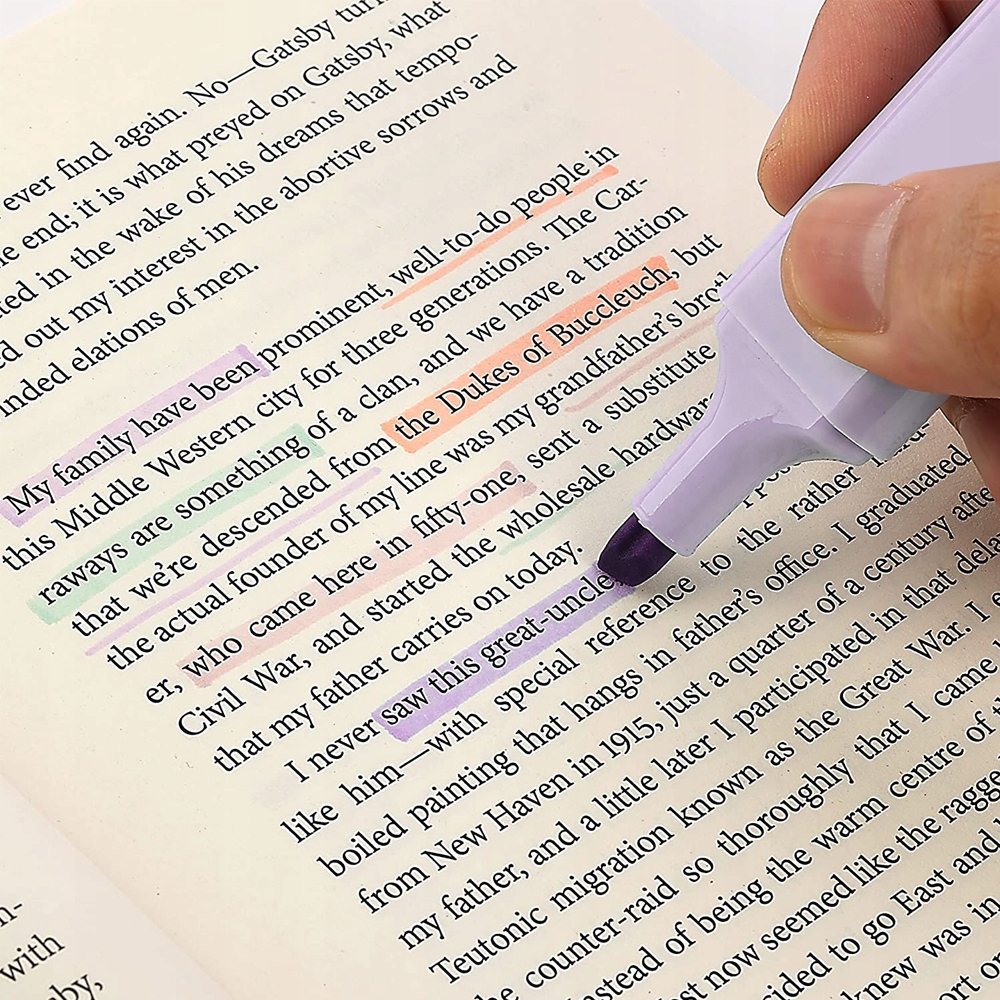 ever find again. No—Gatsby turn
end; it is what preyed on Gatsby, what
in the wake of his dreams that tempo-
out my interest in the abortive sorrows and
elations of men.
My family have been prominent, well-to-do people in
this Middle Western city for three generations. The Car-
raways are something of a clan, and we have a tradition
that we're descended from the Dukes of Buccleuch, but
the actual founder of my line was my grandfather's
er, who came here in fifty-one, sent a substitute
Civil War, and started the wholesale hardware
that my father carries on today.
I never saw this great-uncle
like him—with special reference to the rather
boiled painting that hangs in father's office. I graduated
from New Haven in 1915, just a quarter of a century
my father, and a little later I participated in that
Teutonic migration known as the Great War. I
counter-raid so thoroughly that I came
of being the warm centre of
now seemed like the
to go East and
knew was in
with